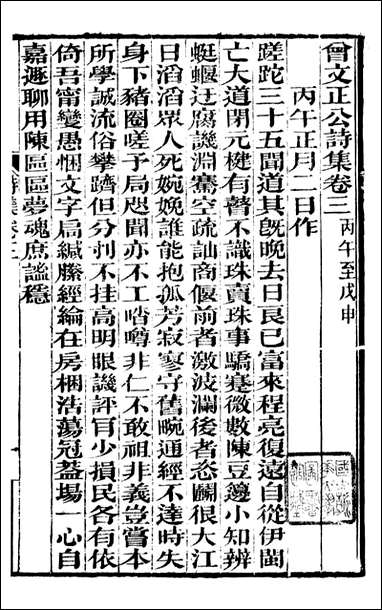 曾文正公詩集卷三 丙午至戊申
丙午正月二日作
蹉跎三十五聞道其旣晚去日良已富來程亮復遠自從伊閩
亡大道閉元楗有瞽不識珠賣珠事驕蹇微數陳豆籩小知辨
蜓蝘迂腐譏淵騫空疏訕商偃前者激波瀾後者恣鬭很大江
日滔滔眾人死婉婉誰能抱孤芳寂寥守舊畹通經不達時失
身下豬圈嗟予局咫聞亦不工噂非仁不敢祖非義豈嘗本
所學誠流俗攀躋但分刌不挂高明眼譏評盲少損民各有依
倚吾甯戀愚悃文字局緘縢經綸在房梱浩蕩冠葢場一心自
嘉遯聊用陳區區夢魂庶謐穩
詩集卷三